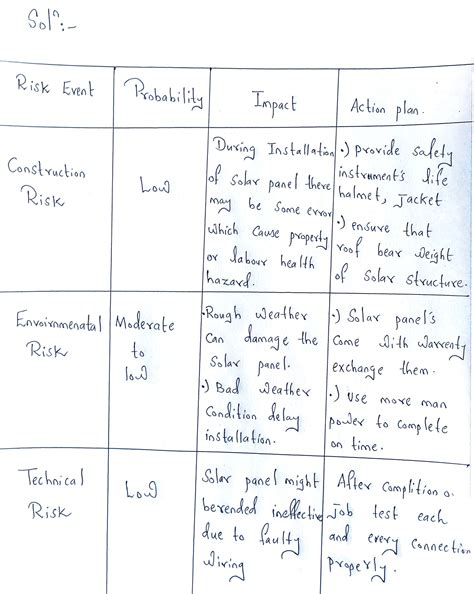 Solⁿ:-
Risk Event
Probability
Impact
Action plan.
Construction
Risk
Low
During Installation
of solar panel there
may be some error
which cause property
or labour health
hazard.
•) provide safety
instruments life
halmet, jacket
•) ensure that
roof bear weight
of solar structure.
Envoirnmenatal
Risk
Moderate
to
low
•Rough weather
can damage the
solar panel.
•) Bad weather
condition delay
installation.
•) Solar panel's
come with warrenty
exchange them.
•) use more man
power to complete
on time.
Technical
Risk
Low
Solar panel might
berended ineffective
due to faulty
wiring
After complition o.
Job test each
and every connection
properly.